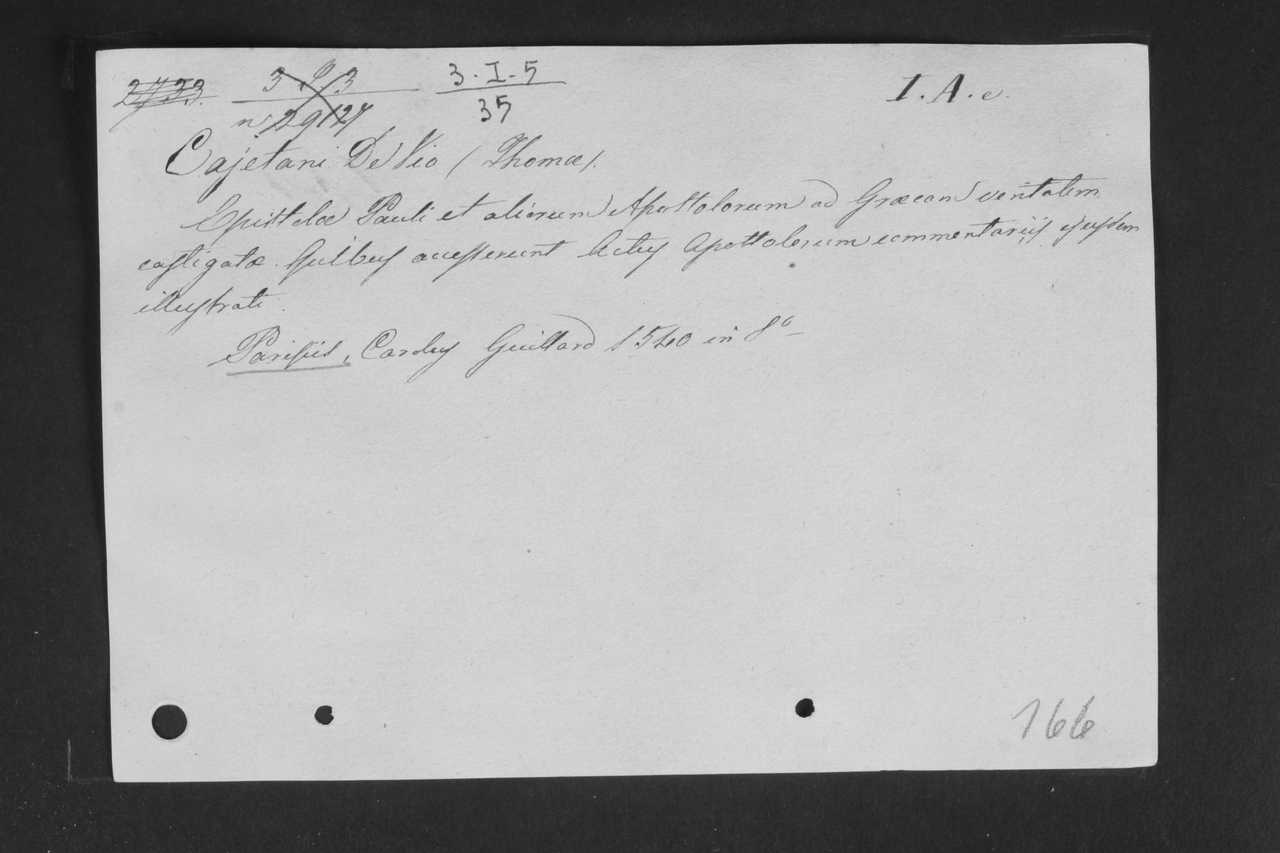 3 · I · 5
35
I. A. c.
Cajetani De Vio (Thomæ).
Epistolæ Pauli et aliorum Apostolorum ad Græcan veritatem
castigatæ. Quibus accesserunt Actus Apostolorum commentariis ejusdem
illustrati.
Parisiis, Guillard 1540 in 8º
166